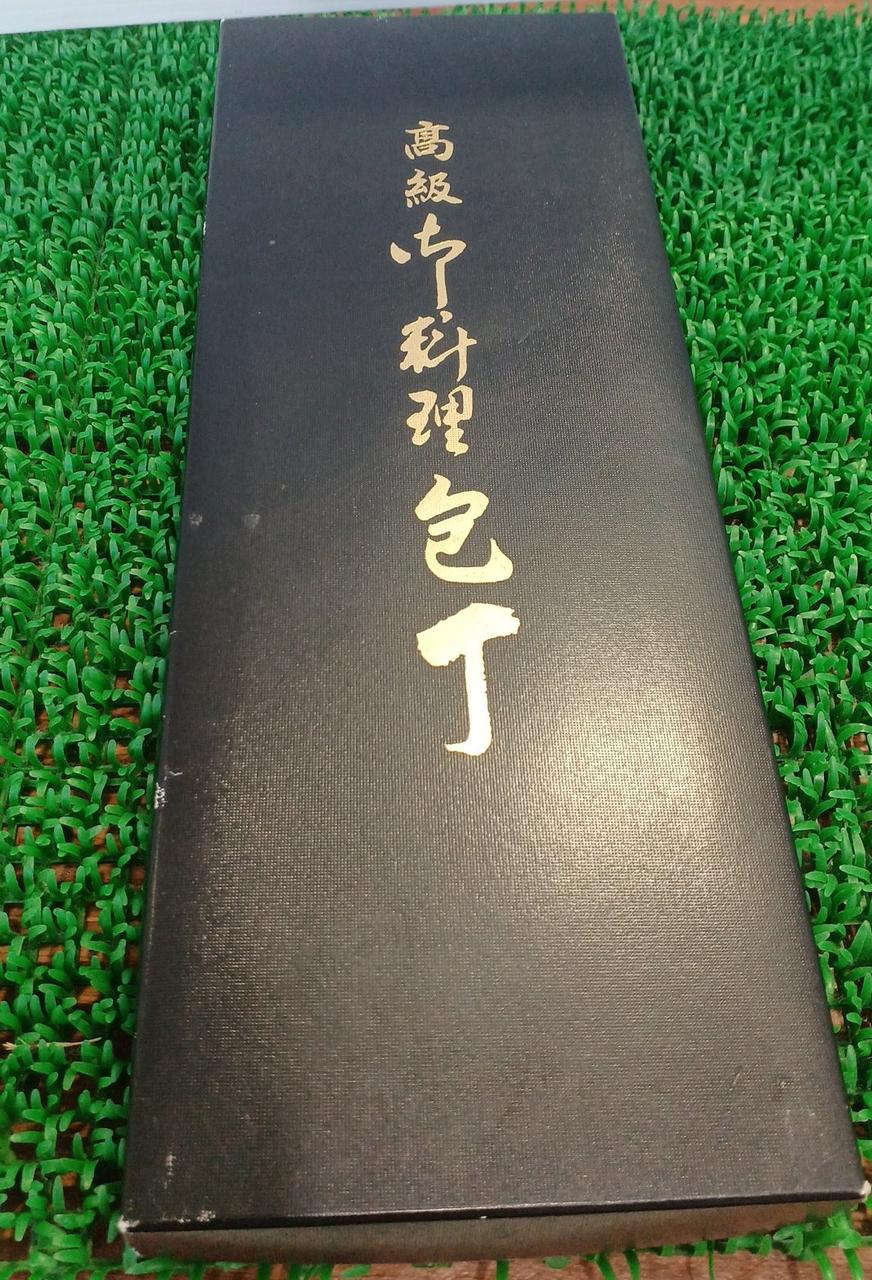 高級御料理包丁